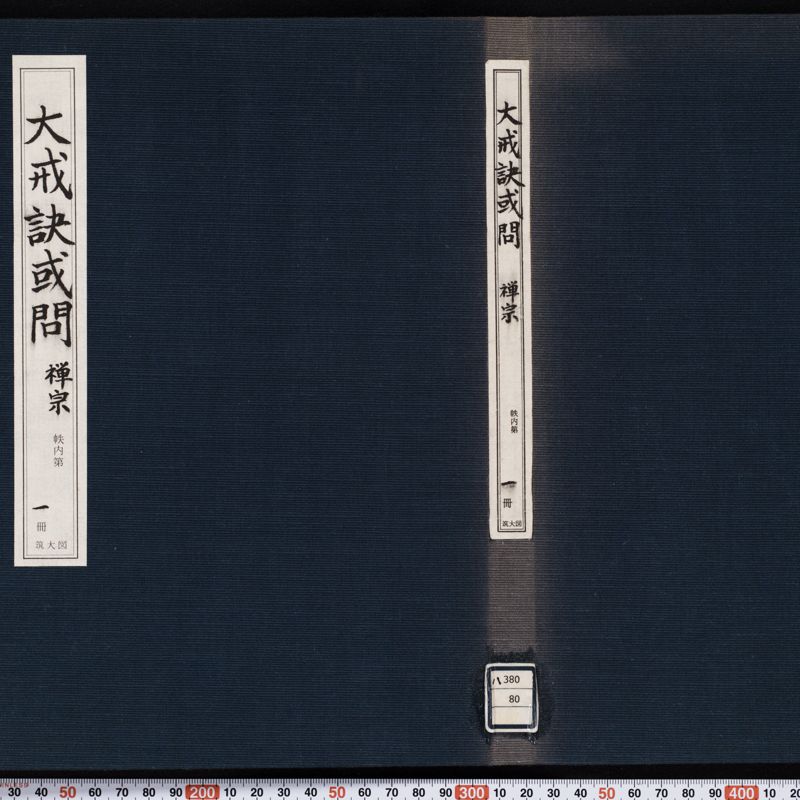 大戒訣或問
禅宗
帙内第
一
冊
筑大図
大戒訣或問
禅宗
帙内第
一
冊
筑大図
ハ380
80
30 40 50 60 70 80 90 200 10 20 30 40 50 60 70 80 90 300 10 20 30 40 50 60 70 80 90 400 10 20